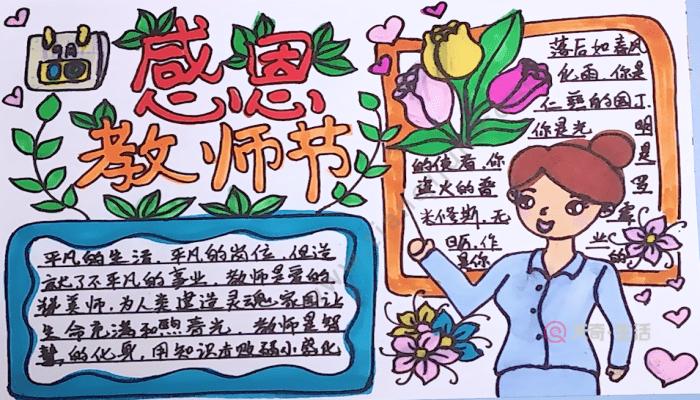 9月
感恩
教师节
平凡的生活,平凡的岗位,但造
就了不平凡的事业,教师是爱的
为人类塑造灵魂,家园让
生命充满和煦春光,教师是智
慧的化身,用知识
落后如春风
化雨,你是
仁 的园丁.
你是光 明
的使者,你 是
火的
米修斯.无
作 业
是你 的
奇·生活